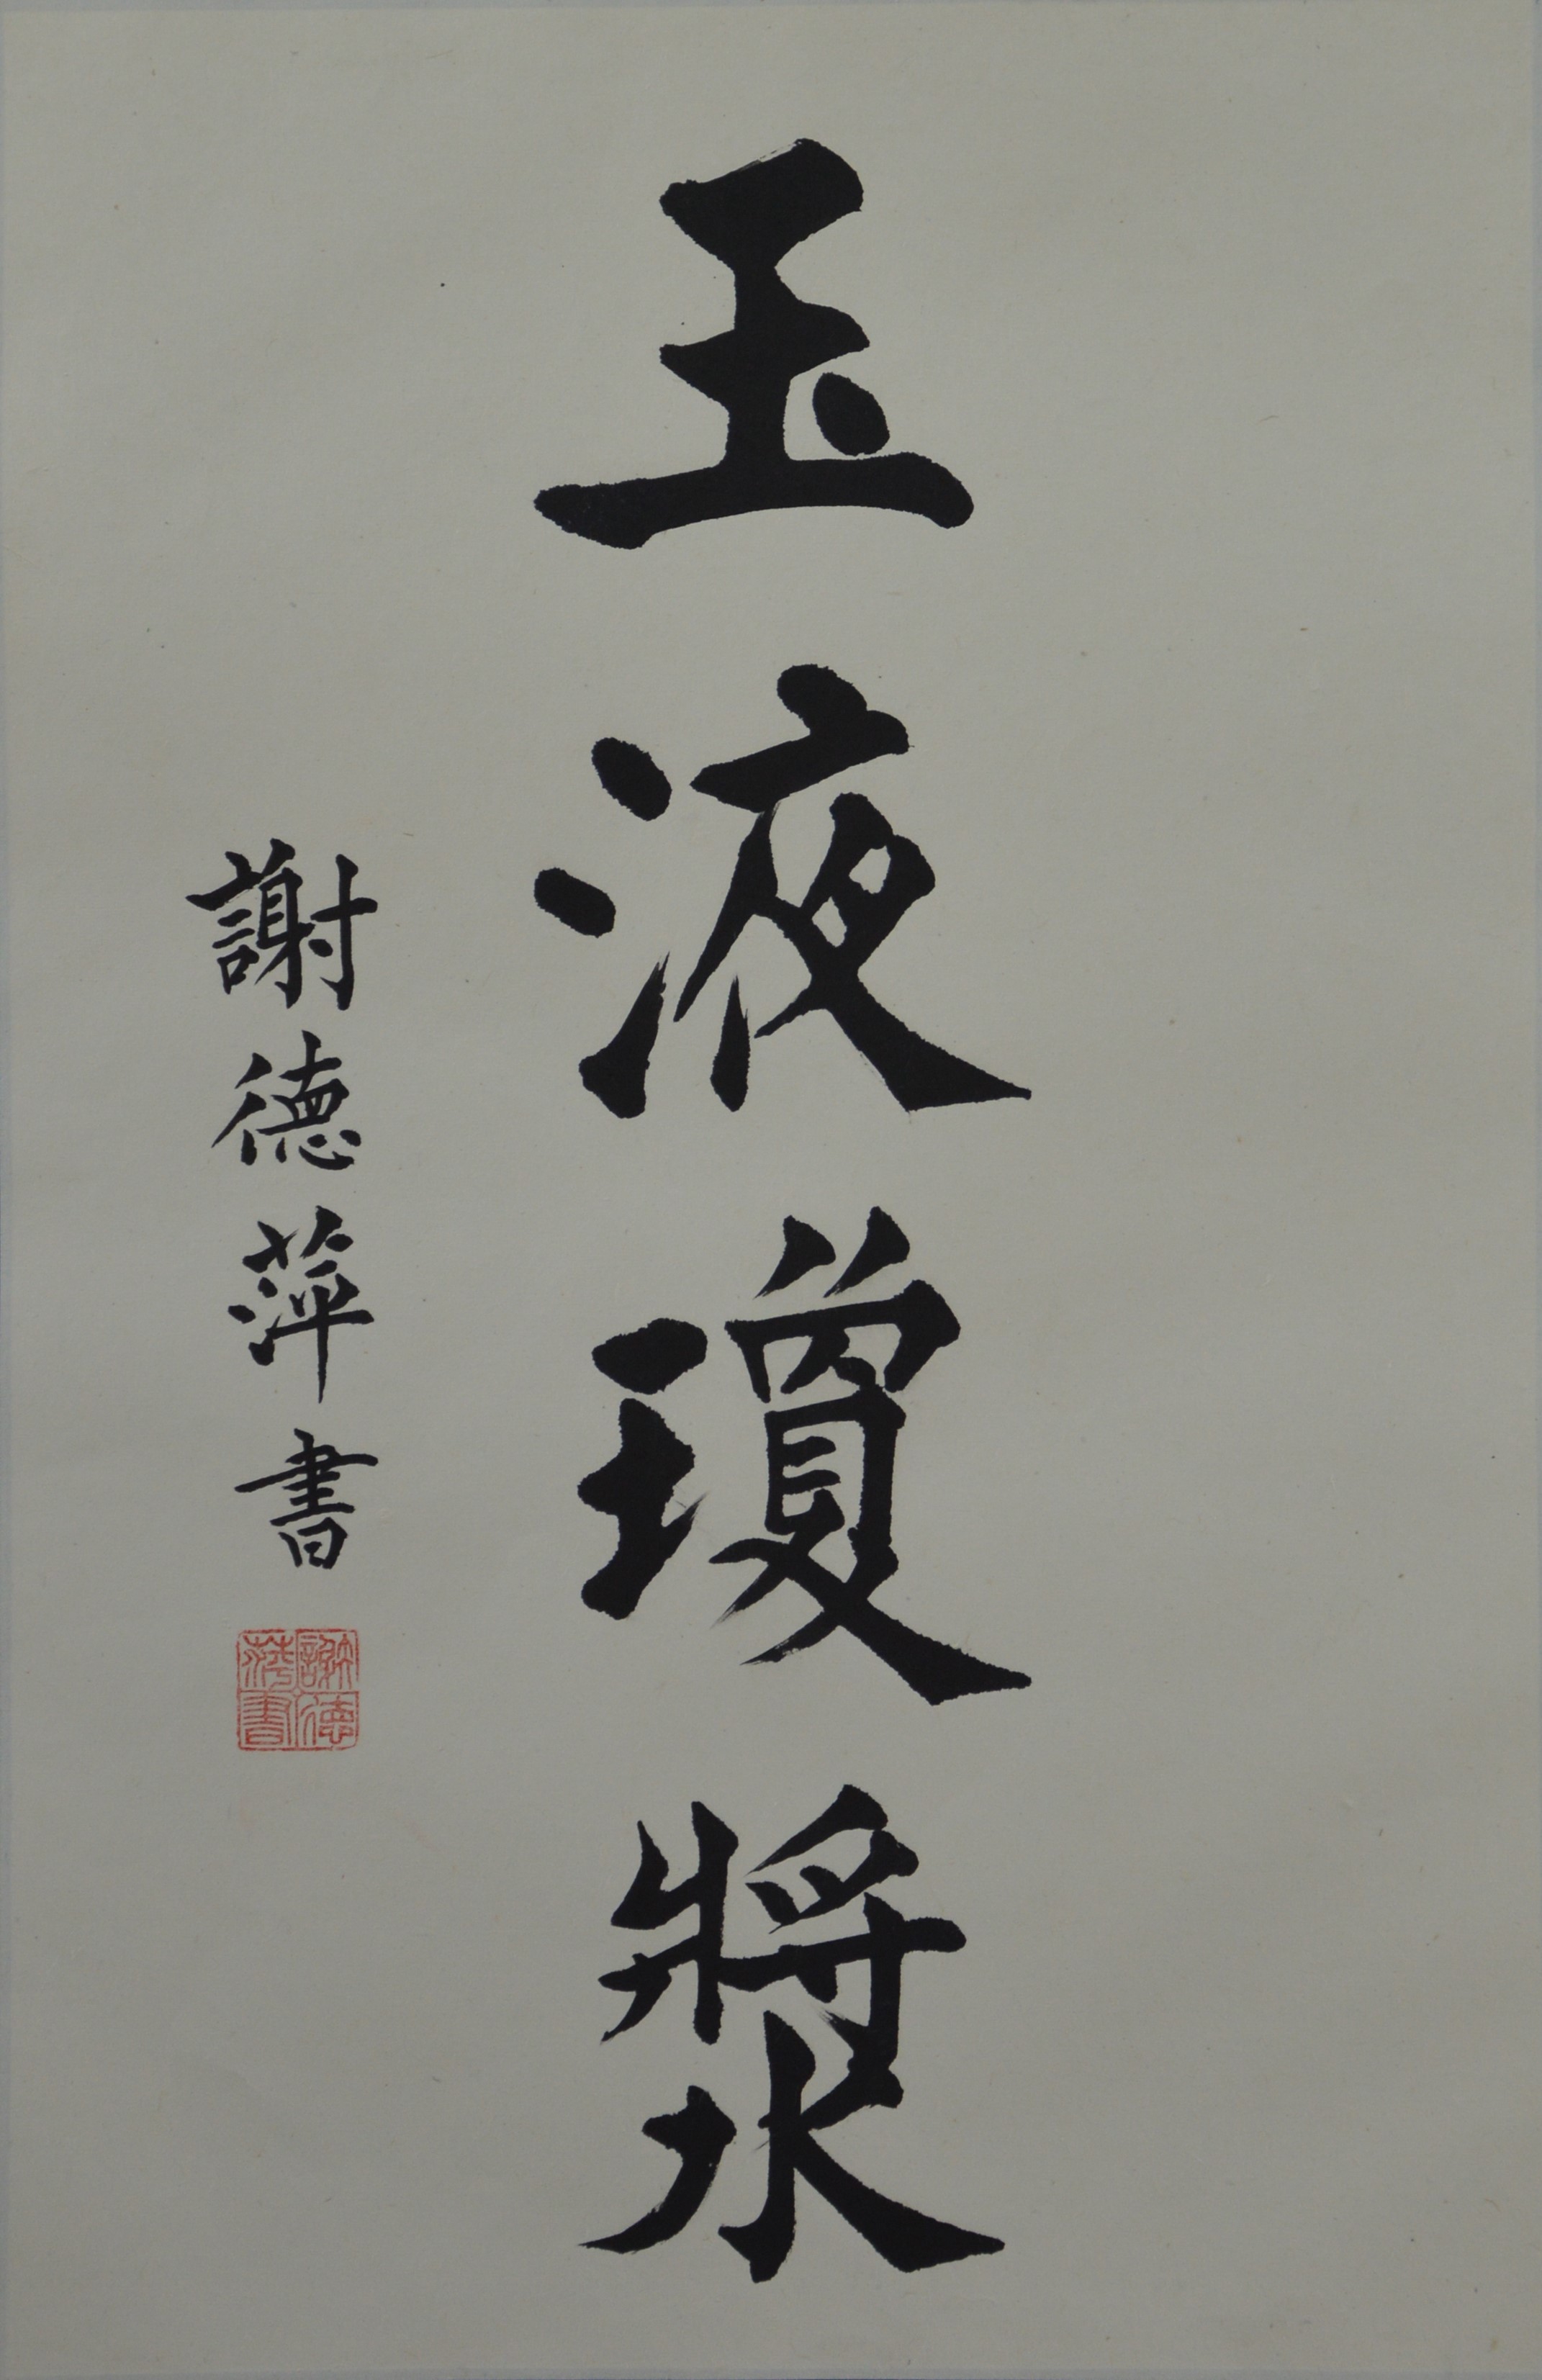 玉液瓊漿
謝德萍書
謝德
萍書